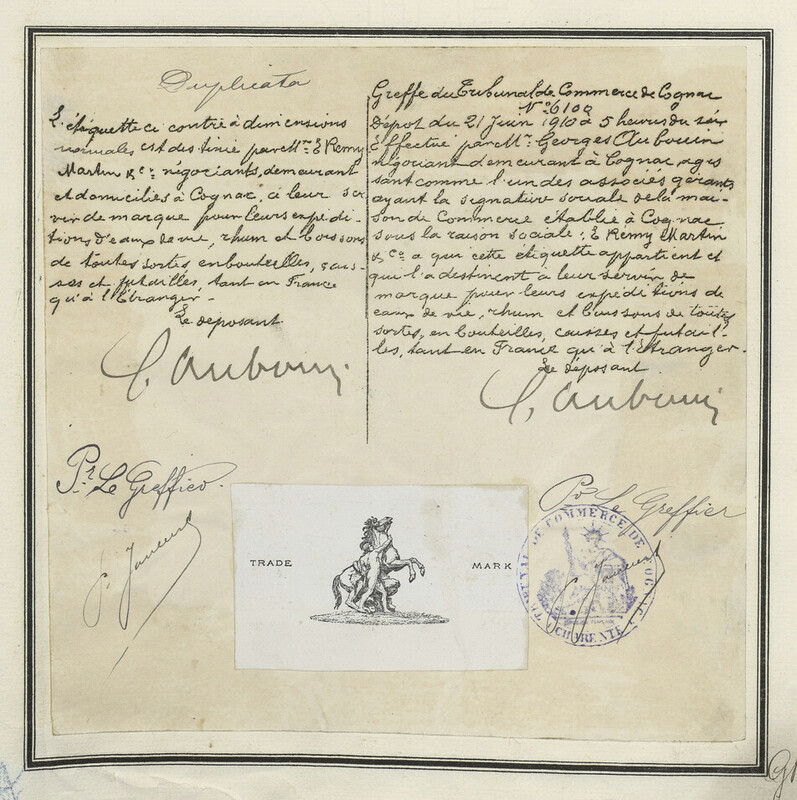 Duplicata
L'étiquette ci contre à dimensions
normales est destinée par Mrs E Remy
Martin & Cie négociants, demeurant
et domiciliés à Cognac, à leur ser
vir de marque pour leurs expédi-
tions d'eaux de vie, rhum et boissons
de toutes sortes, en bouteilles, cais-
ses et futailles, tant en France
qu'à l'Etranger -
Le deposant
G. Aubouin
Pr Le Greffier
Greffe du Tribunal de Commerce de Cognac
No 6100
Dépot du 21 Juin 1910 à 5 heures du soir
Effectué par Mr Georges Aubouin
négociant demeurant à Cognac, agis
sant comme l'un des associés gérants
ayant la signature sociale de la mai-
son de Commerce établie à Cognac
sous la raison sociale : E Remy Martin
& Co à qui cette étiquette appartient et
qui l'a destinent à leur servir de
marque pour leurs expéditions de
eaux de vie, rhum et boissons de toutes
sortes, en bouteilles, caisses et futail-
les, tant en France qu'à l'étranger.
Le deposant
G. Aubouin
Pr Le Greffier
TRADE MARK
TRIBUNAL DE COMMERCE DE COGNAC
CHARENTE